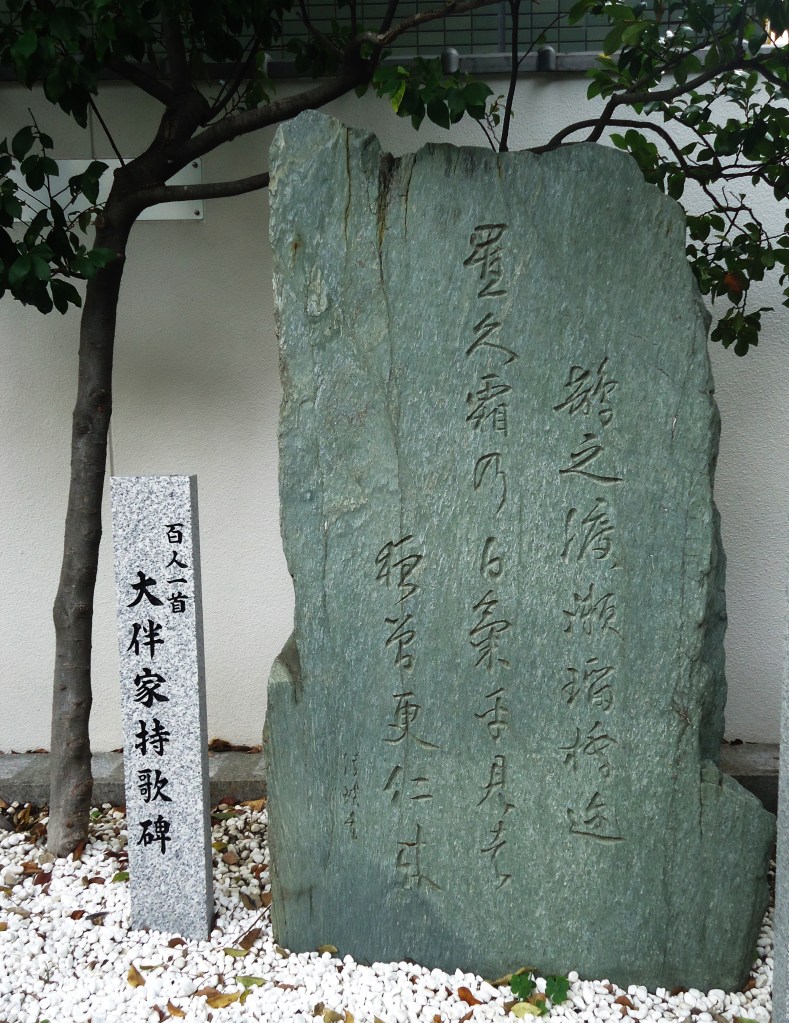 鵲之渡瀬瑠橋迩
置久霜乃白氣乎見者
夜曽更仁来
百人一首
大伴家持歌碑